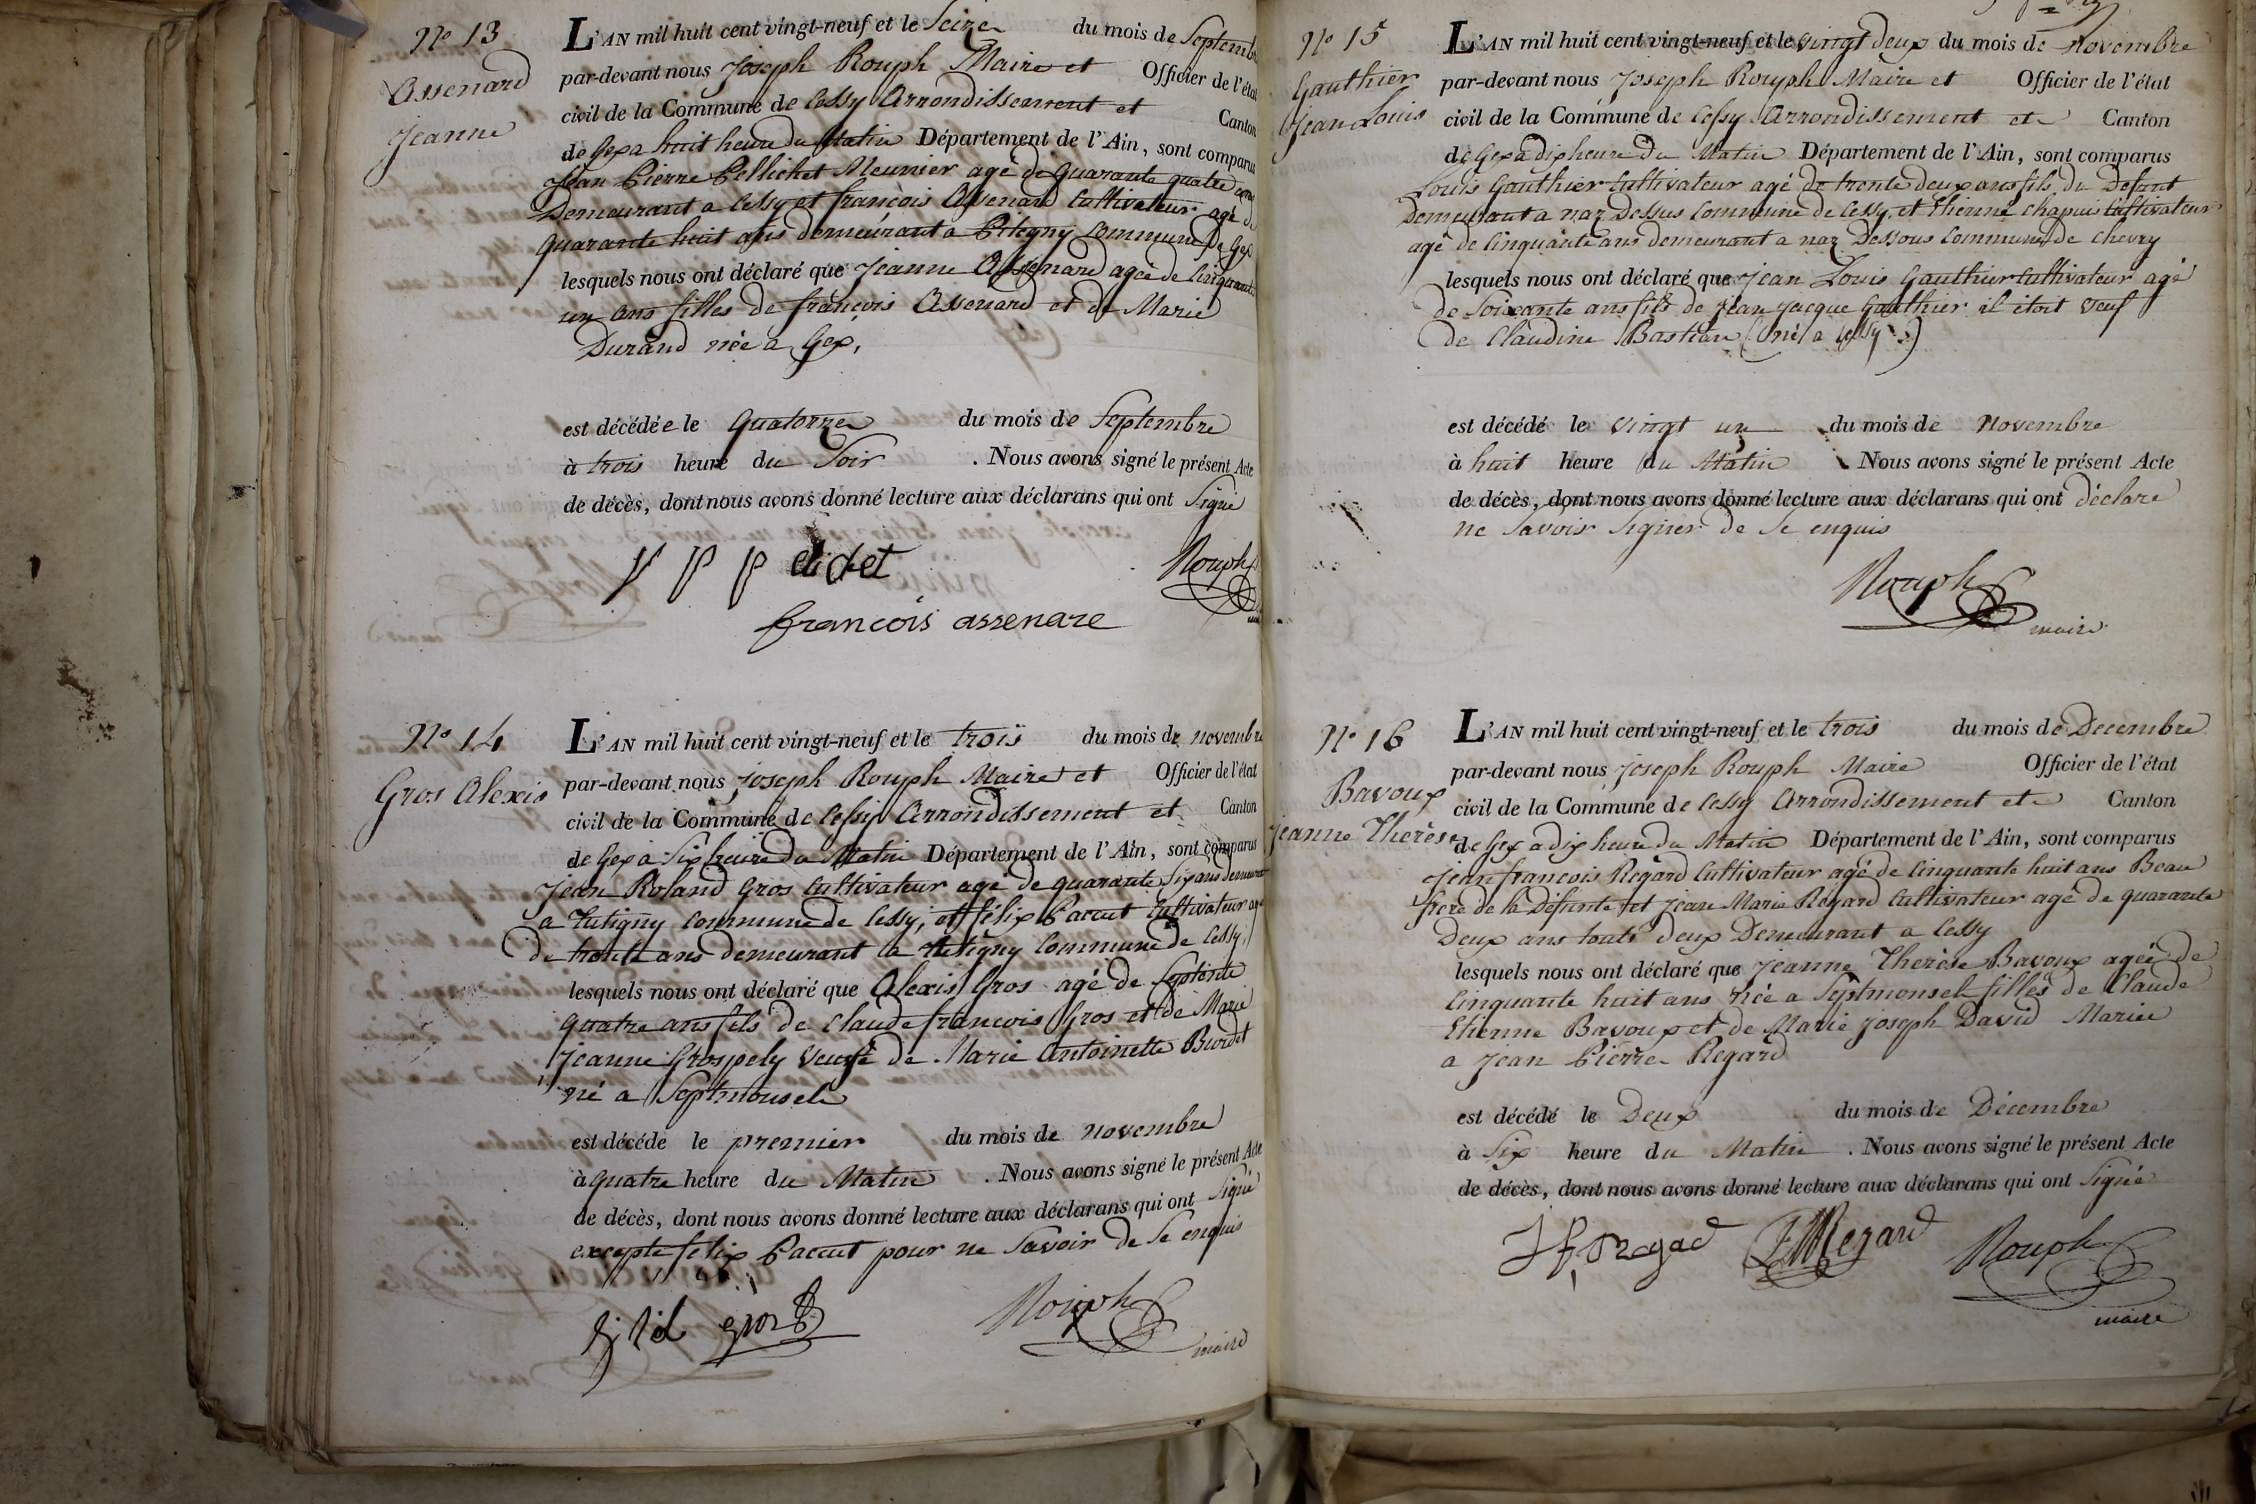 Nº 13
Assenard
Jeanne
L'AN mil huit cent vingt-neuf et le Seize du mois de Septembre
par-devant nous Joseph Rouph Maire et Officier de l'état
civil de la Commune de Cessy Arrondissement et Canton
de Gex a huit heure du Matin Département de l'Ain, sont comparus
Jean Pierre Pellichet Meunier agé de quarante quatre ans
Demeurant a Cessy et françois Assenard Cultivateur agé de
quarante huit ans demeurant a Pitegny Commune de Gex
lesquels nous ont déclaré que Jeanne Assenard agée de Cinquante
un ans filles de françois Assenard et de Marie
Durand née a Gex,
est décédée le Quatorze du mois de Septembre
à trois heure du Soir . Nous avons signé le présent Acte
de décès, dont nous avons donné lecture aux déclarans qui ont Signé
J P P elichet Rouph
françois assenare
Nº 14
Gros Alexis
L'AN mil huit cent vingt-neuf et le trois du mois de novembre
par-devant nous Joseph Rouph Maire et Officier de l'état
civil de la Commune de Cessy Arrondissement et Canton
de Gex a Six heure du Matin Département de l'Ain, sont comparus
Jean Roland Gros Cultivateur agé de quarante Six ans demeurant
a Tutigny Commune de Cessy, et félix Paccut Cultivateur agé
de trente ans demeurant a Tutigny Commune de Cessy
lesquels nous ont déclaré que Alexis Gros agé de Septente
quatre ans fils de Claude francois Gros et de Marie
Jeanne Grospely veuf de Marie Antoinette Burdet
né a Septmoncel
est décéde le premier du mois de novembre
à quatre heure du Matin . Nous avons signé le présent Acte
de décès, dont nous avons donné lecture aux déclarans qui ont Signé
excepte felix Paccut pour ne Savoir de Se enquis
gros Rouph
maire
Nº 15
Gauthier
Jean Louis
L'AN mil huit cent vingt-neuf et le vingt deux du mois de novembre
par-devant nous Joseph Rouph Maire et Officier de l'état
civil de la Commune de Cessy Arrondissement et Canton
de Gex a dix heure du Matin Département de l'Ain, sont comparus
Louis Gauthier Cultivateur agé de trente deux ans fils du Defunt
Demeurant a naz Dessus Commune de Cessy, et Etienne Chapuis Cultivateur
agé de Cinquante ans demeurant a naz Dessous Commune de Chevry
lesquels nous ont déclaré que Jean Louis Gauthier Cultivateur agé
de Soixante ans fils de Jean Jacque Gauthier il étoit veuf
de Claudine Bastian (né a Cessy)
est décédé le vingt un du mois de novembre
à huit heure du Matin . Nous avons signé le présent Acte
de décès, dont nous avons donné lecture aux déclarans qui ont déclare
ne Savoir Signer de Se enquis
Rouph
maire
Nº 16
Bavoux
Jeanne Therèse
L'AN mil huit cent vingt-neuf et le trois du mois de Decembre
par-devant nous Joseph Rouph Maire Officier de l'état
civil de la Commune de Cessy Arrondissement et Canton
de Gex a dix heure du Matin Département de l'Ain, sont comparus
Jean francois Régard Cultivateur agé de Cinquante huit ans Beau
frere de la Défunte et Jean Marie Régard Cultivateur agé de quarante
Deux ans touts deux Demeurant a Cessy
lesquels nous ont déclaré que Jeanne Therèse Bavoux agée de
Cinquante huit ans née a Septmoncel filles de Claude
Etienne Bavoux et de Marie Joseph David Mariée
a Jean Pierre Regard
est décédé le Deux du mois de Décembre
à Six heure du Matin . Nous avons signé le présent Acte
de décès, dont nous avons donné lecture aux déclarans qui ont Signé
J f Regad JMRegard Rouph
maire